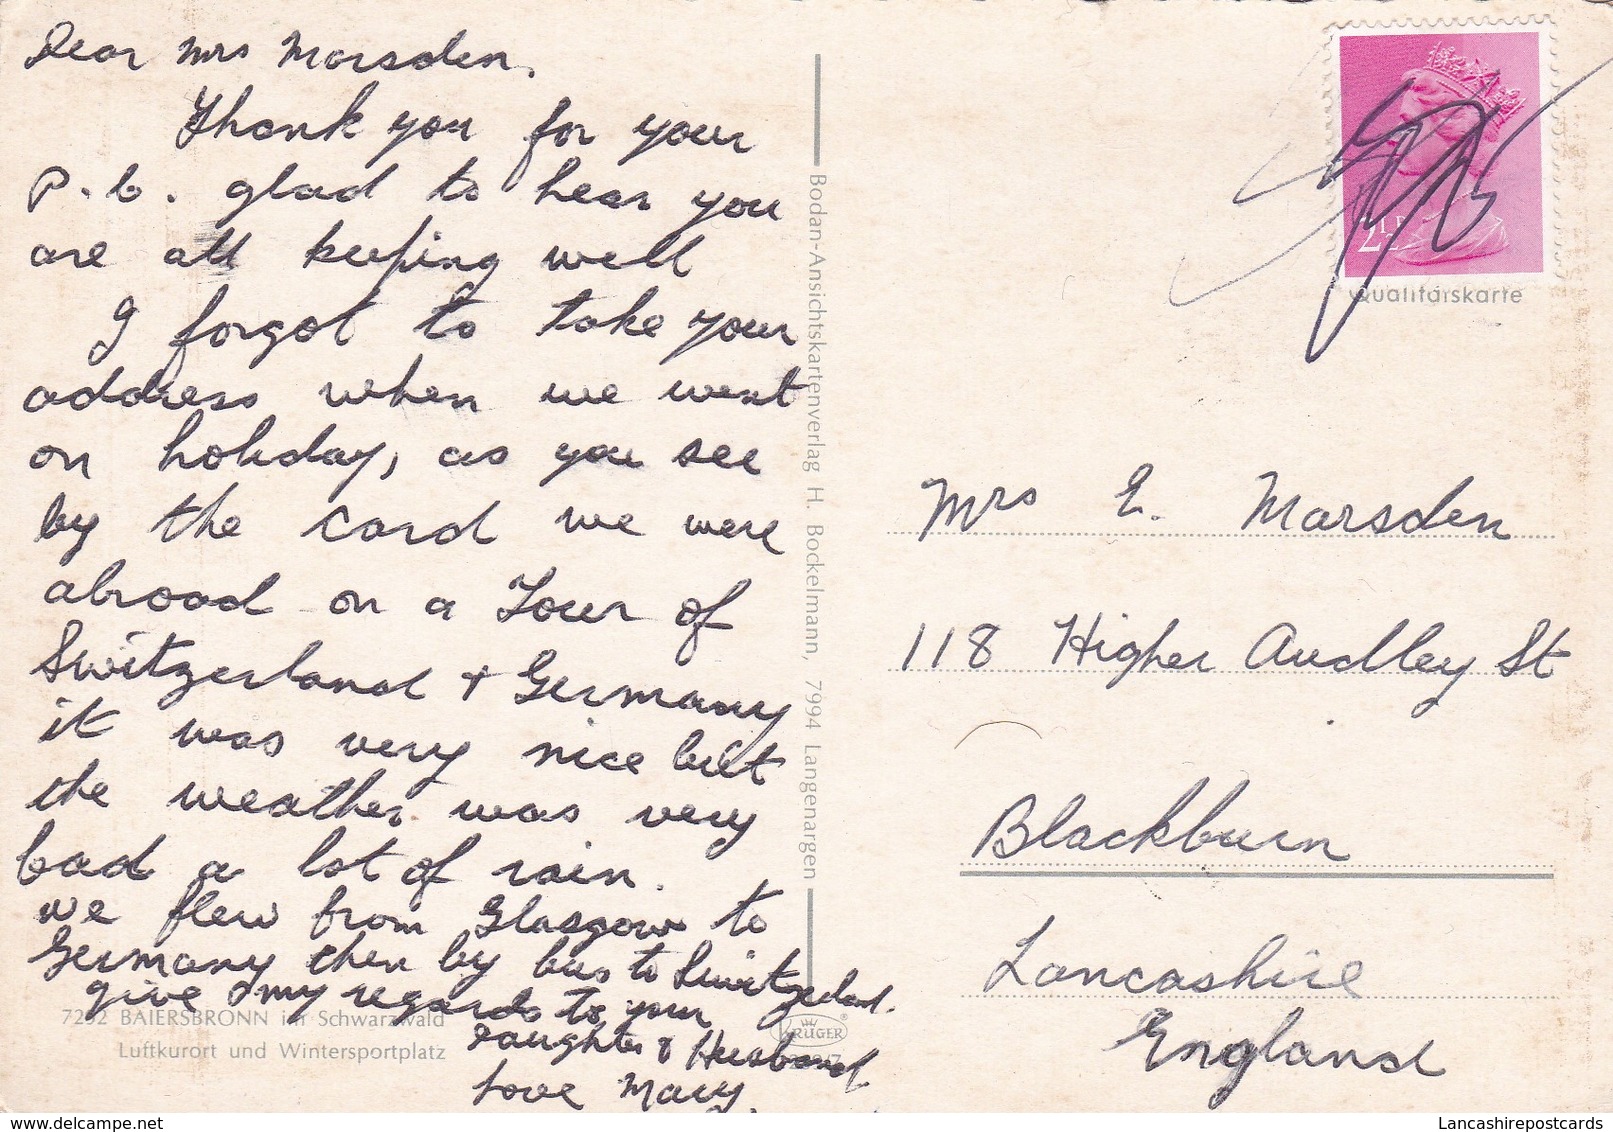 Dear Mrs Marsden,
Thank you for your
P.C. glad to hear you
are all keeping well
I forgot to take your
address when we went
on holiday, as you see
by the card we were
abroad on a Tour of
Switzerland + Germany
it was very nice but
the weather was very
bad a lot of rain.
we flew from Glasgow to
Germany then by bus to Switzerland.
give my regards to your
Daughter & Husband
Love Mary.
7292 BAIERSBRONN im Schwarzwald
Luftkurort und Wintersportplatz
Bodan-Ansichtskartenverlag H. Bockelmann, 7994 Langenargen
KRÜGER
2½P
Qualitätskarte
Mrs E. Marsden
118 Higher Audley St
Blackburn
Lancashire
England
Lancashirepostcards
delcampe.net